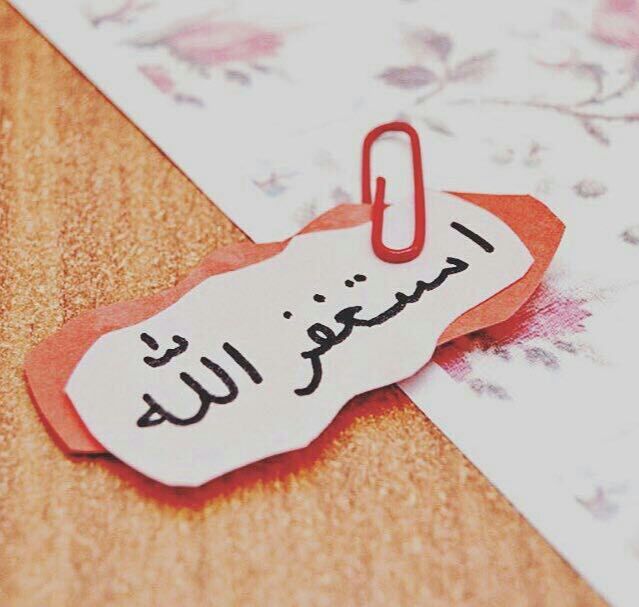 استغفر اللّٰه